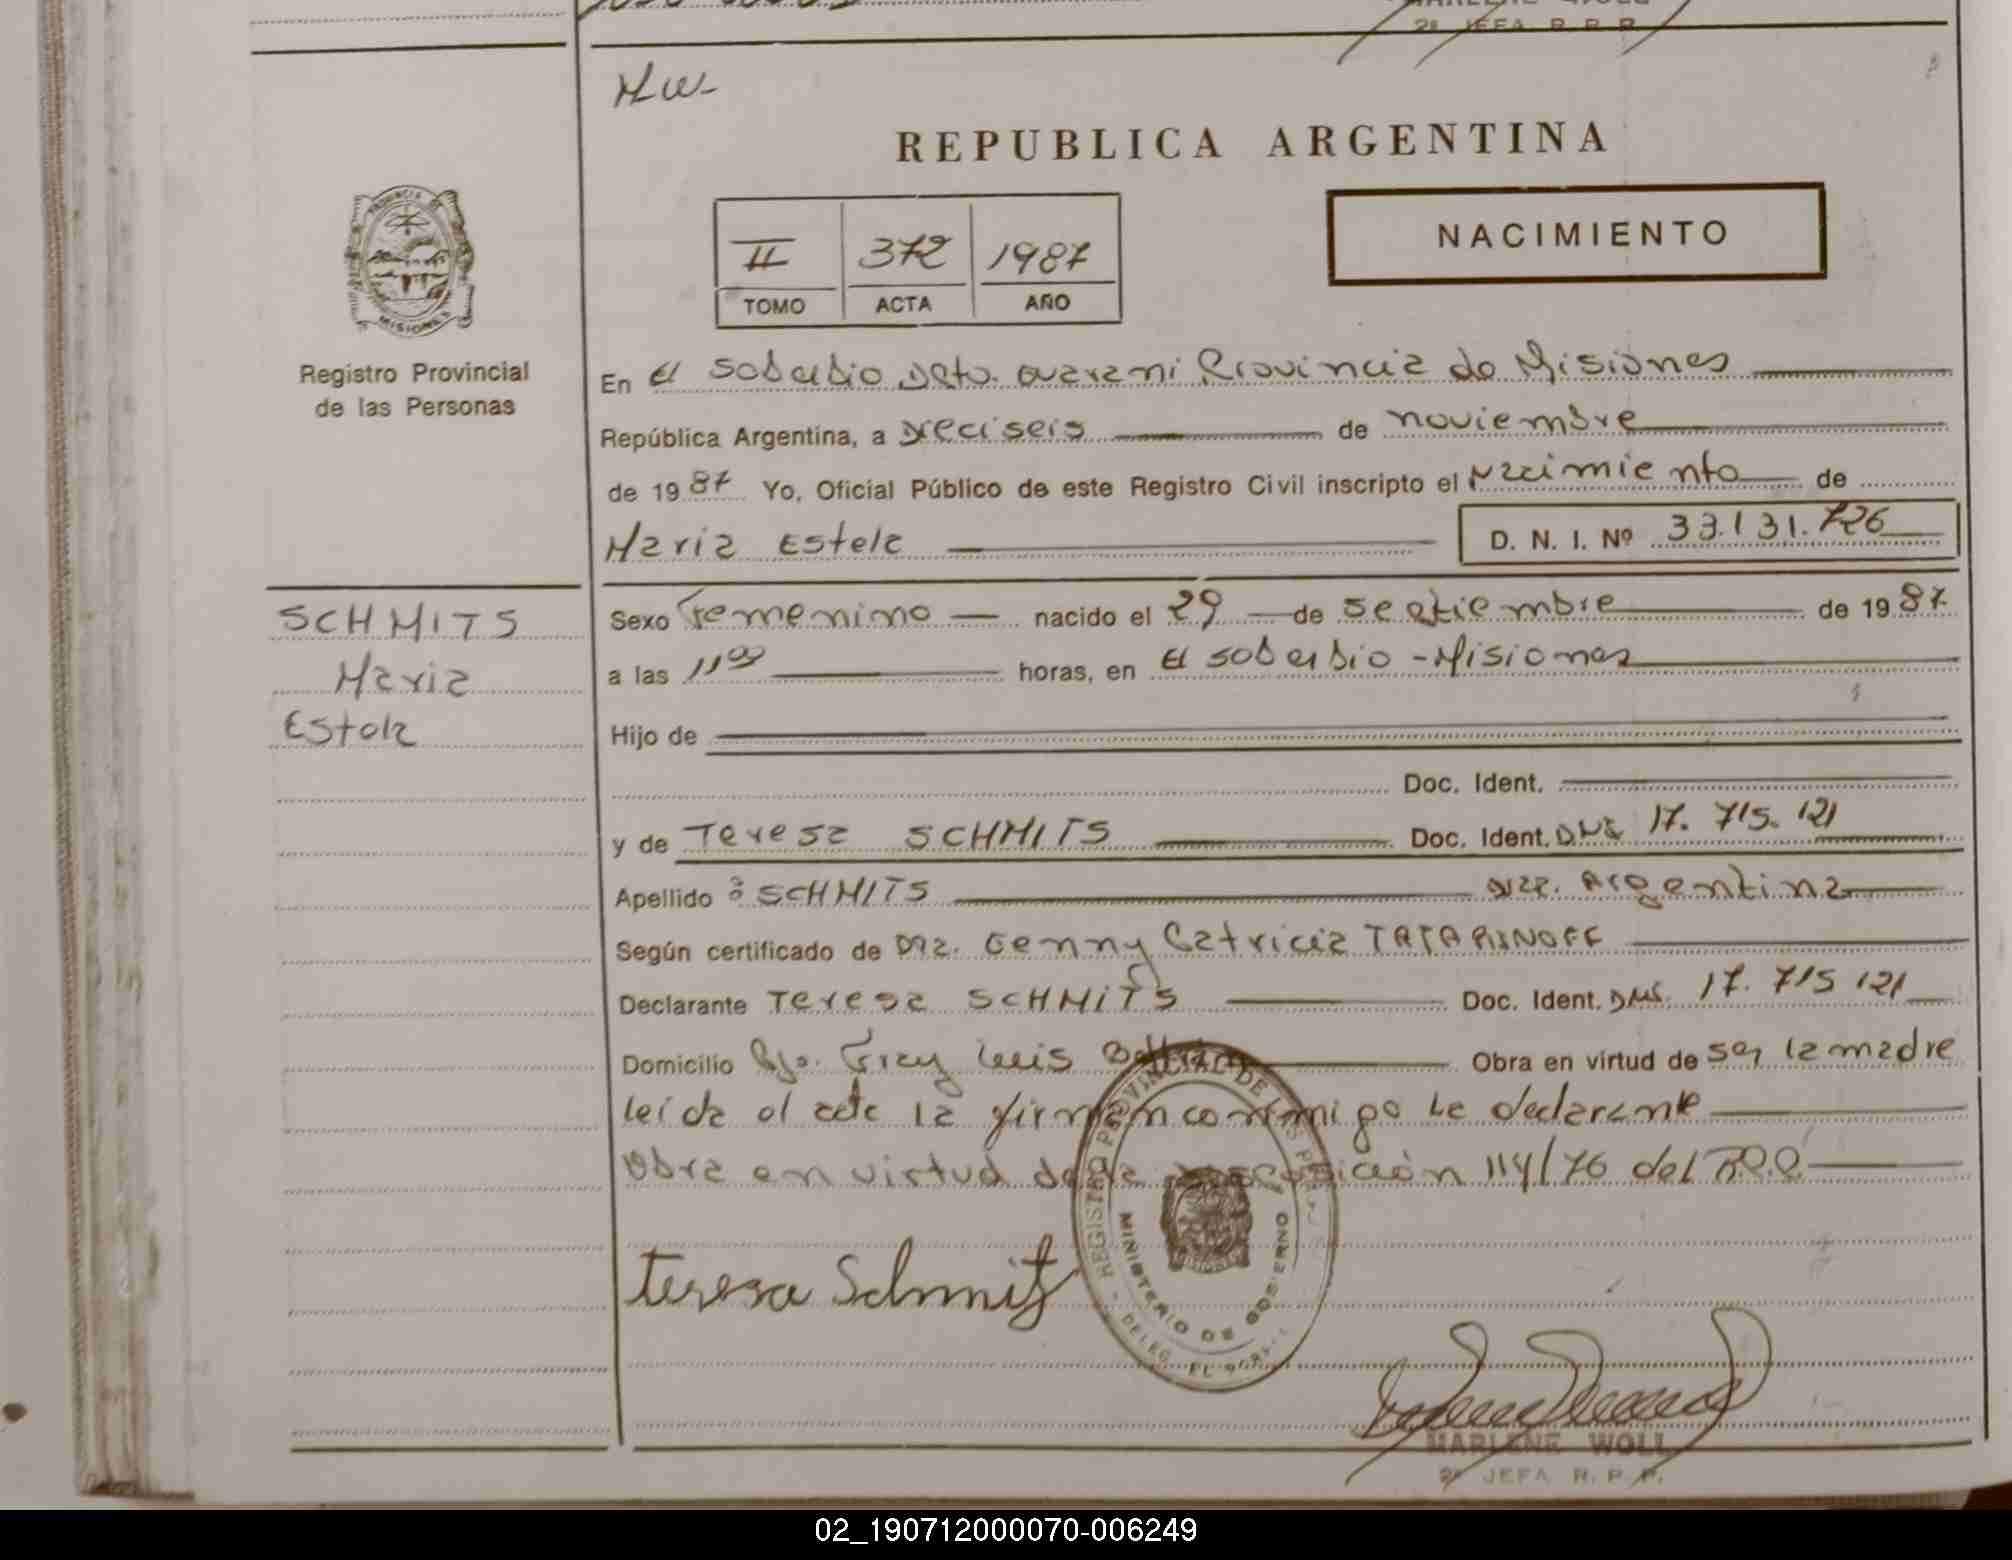 2ª JEFA R. P. P.
M.W-
REPUBLICA ARGENTINA
PROVINCIA DE
MISIONES
Registro Provincial
de las Personas
II 372 1987
TOMO ACTA AÑO
NACIMIENTO
En El Soberbio Dpto. Guarani Provincia de Misiones
República Argentina, a Dieciseis de noviembre
de 1987 Yo, Oficial Público de este Registro Civil inscripto el Nacimiento de
Maria Estela D. N. I. Nº 33.131.726
SCHMITS
Maria
Estela
Sexo Femenino nacido el 29 de Septiembre de 1987
a las 11⁰⁰ horas, en El Soberbio - Misiones
Hijo de
Doc. Ident.
y de Teresa SCHMITS Doc. Ident. DNI 17.715.121
Apellido ö SCHMITS Naz. Argentina
Según certificado de Dra. Genny Patricia TATARINOFF
Declarante Teresa SCHMITS Doc. Ident. DNI. 17.715 121
Domicilio Bjo. Fray Luis Beltrán Obra en virtud de ser la madre
leída el acta la firman conmigo la declarante
Obra en virtud de la disposición 114/76 del
Teresa Schmits
REGISTRO PROVINCIAL DE LAS PERSONAS
MINISTERIO DE GOBIERNO
DELEG. EL SOBERBIO
MARLENE WOLL
2ª JEFA R. P. P.
02_190712000070-006249